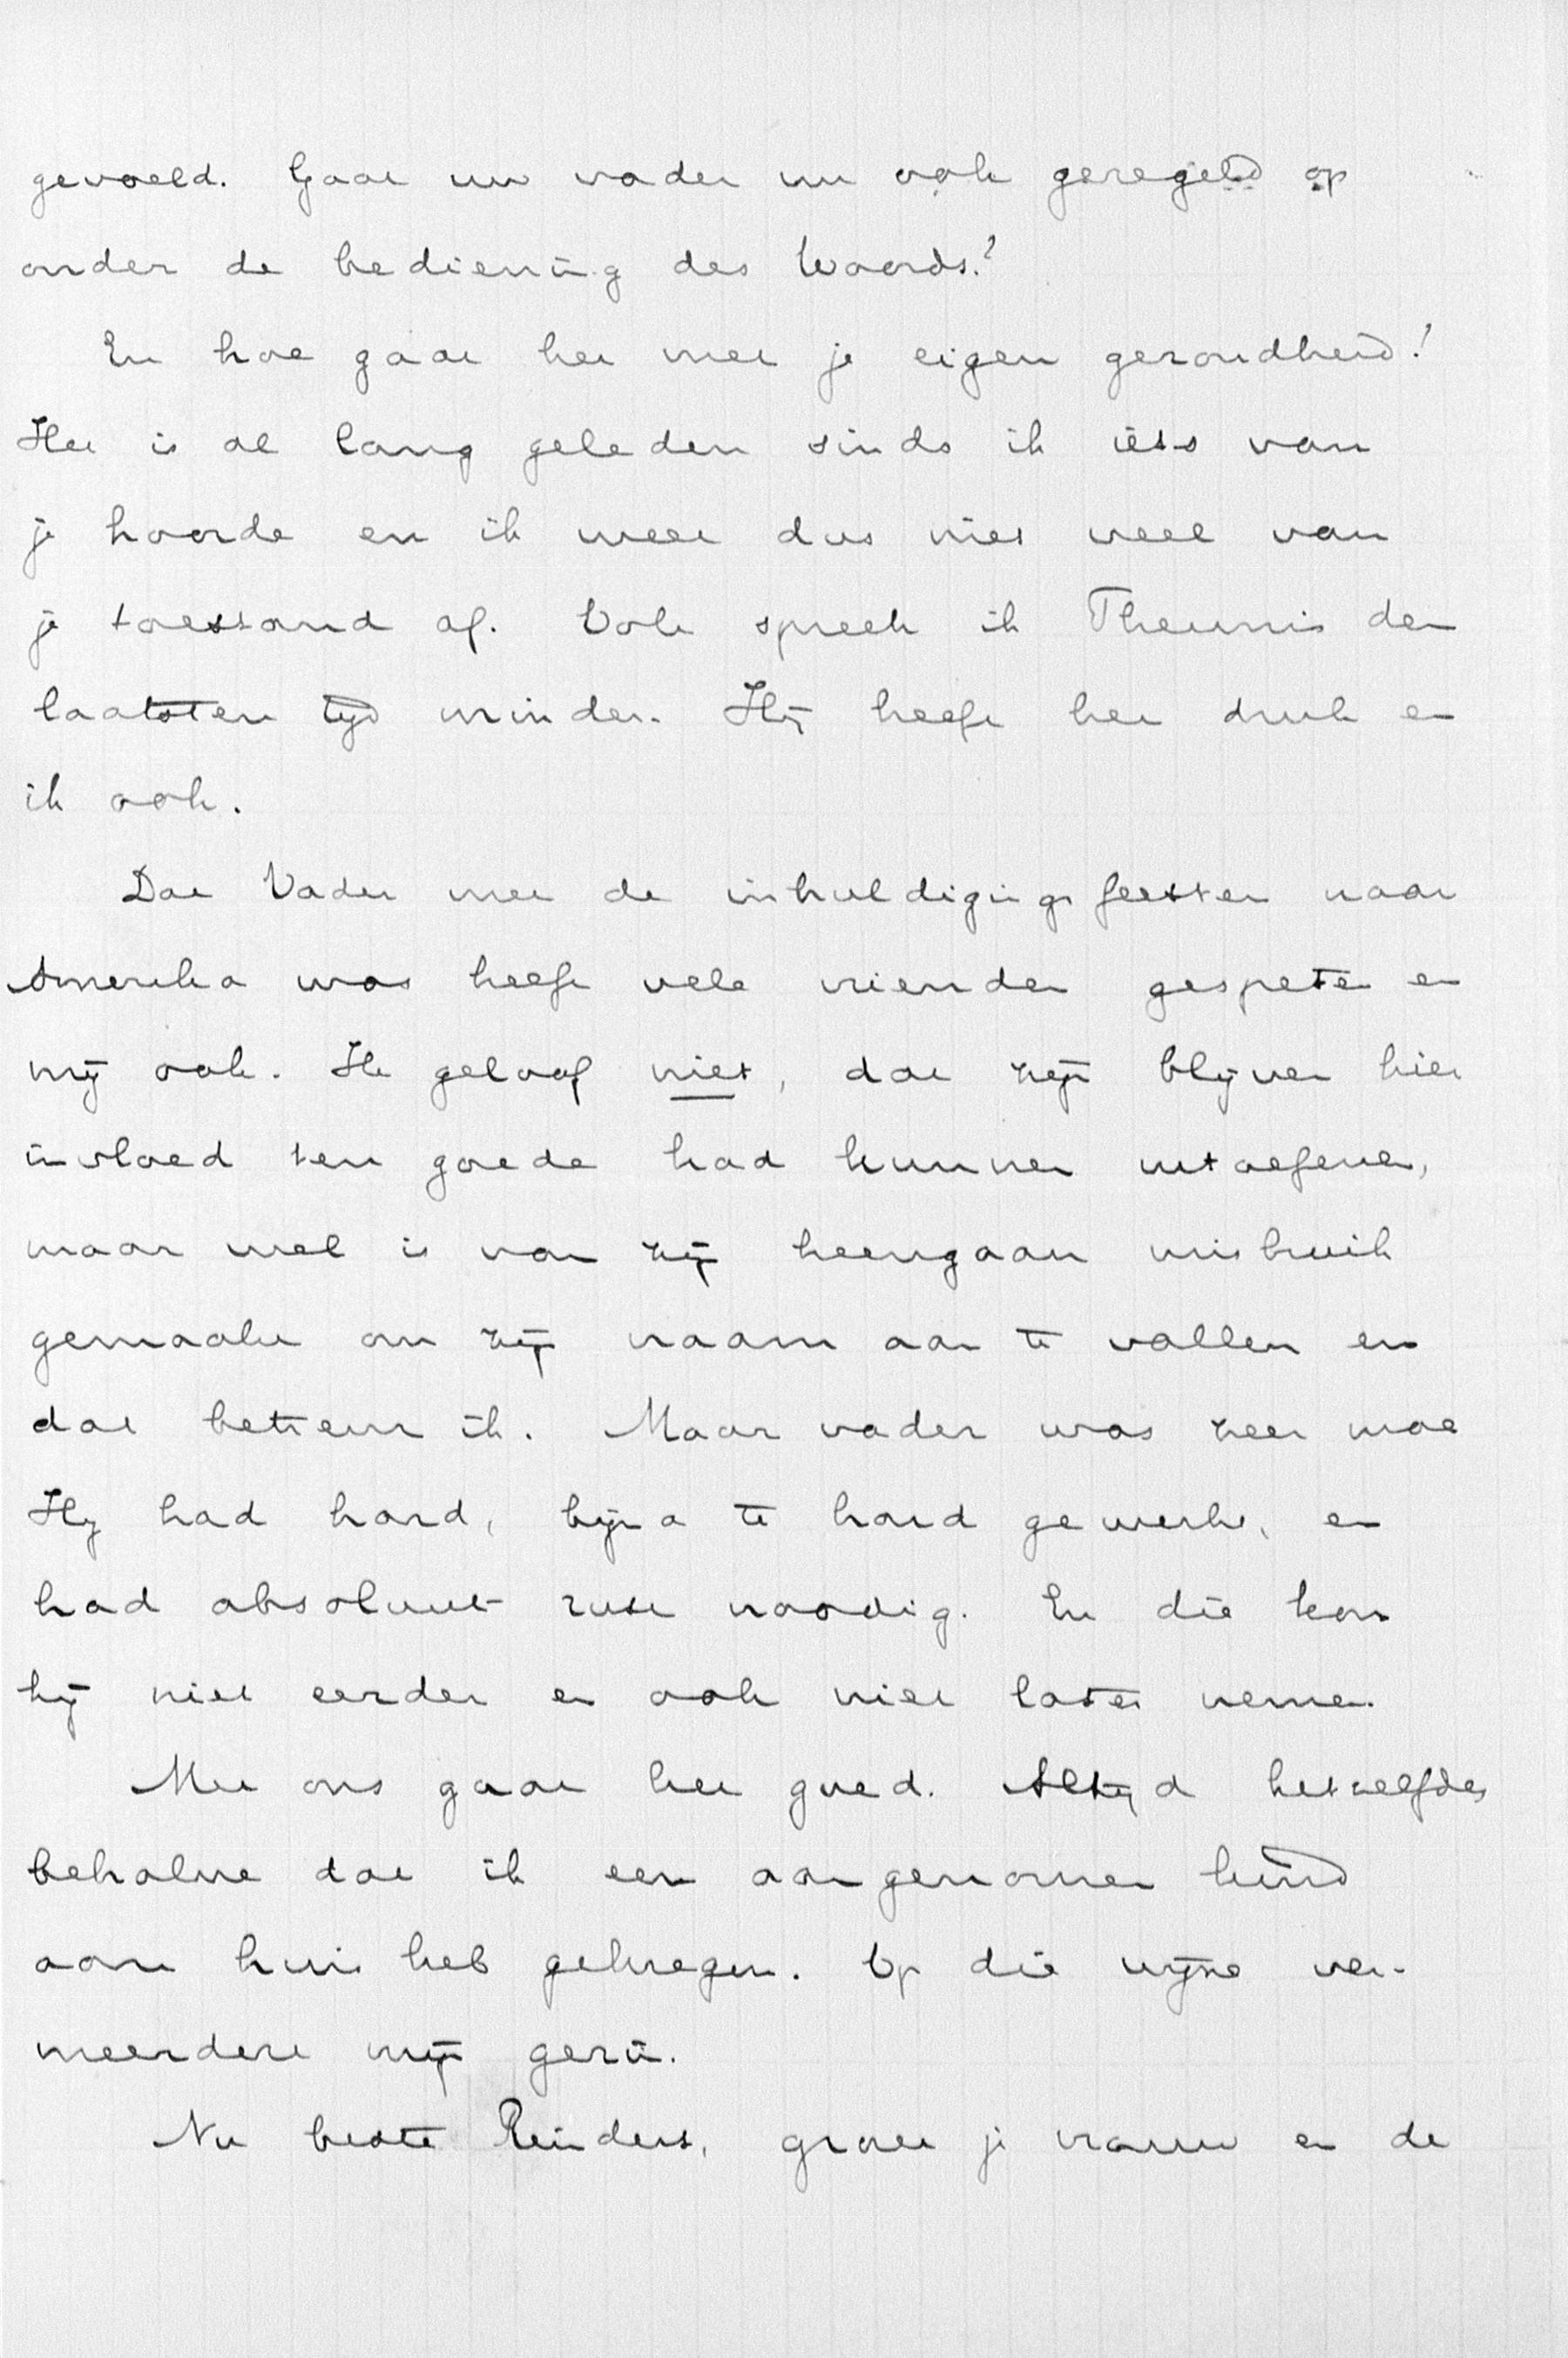 gevoeld. Gaat uw vader nu ook geregeld op
onder de bediening des Woords?
En hoe gaat het met je eigen gezondheid?
Het is al lang geleden sinds ik iets van
je hoorde en ik weet dus niet veel van
je toestand af. Ook spreek ik Theunis den
laatsten tijd minder. Hij heeft het druk en
ik ook.
Dat Vader met de inhuldigingsfeesten naar
Amerika was heeft vele vrienden gespeten en
mij ook. Ik geloof niet, dat zijn blijven hier
invloed ten goede had kunnen uitoefenen,
maar wel is van zijn heengaan misbruik
gemaakt om zijn naam aan te vallen en
dat betreur ik. Maar vader was zeer moe
Hij had hard, bijna te hard gewerkt, en
had absoluut rust noodig. En die kon
hij niet eerder en ook niet later nemen.
Met ons gaat het goed. Altijd hetzelfde,
behalve dat ik een aangenomen kind
aan huis heb gekregen. Op die wijze ver-
meerdert mijn gezin.
Nu beste Reinders, groet je vrouw en de